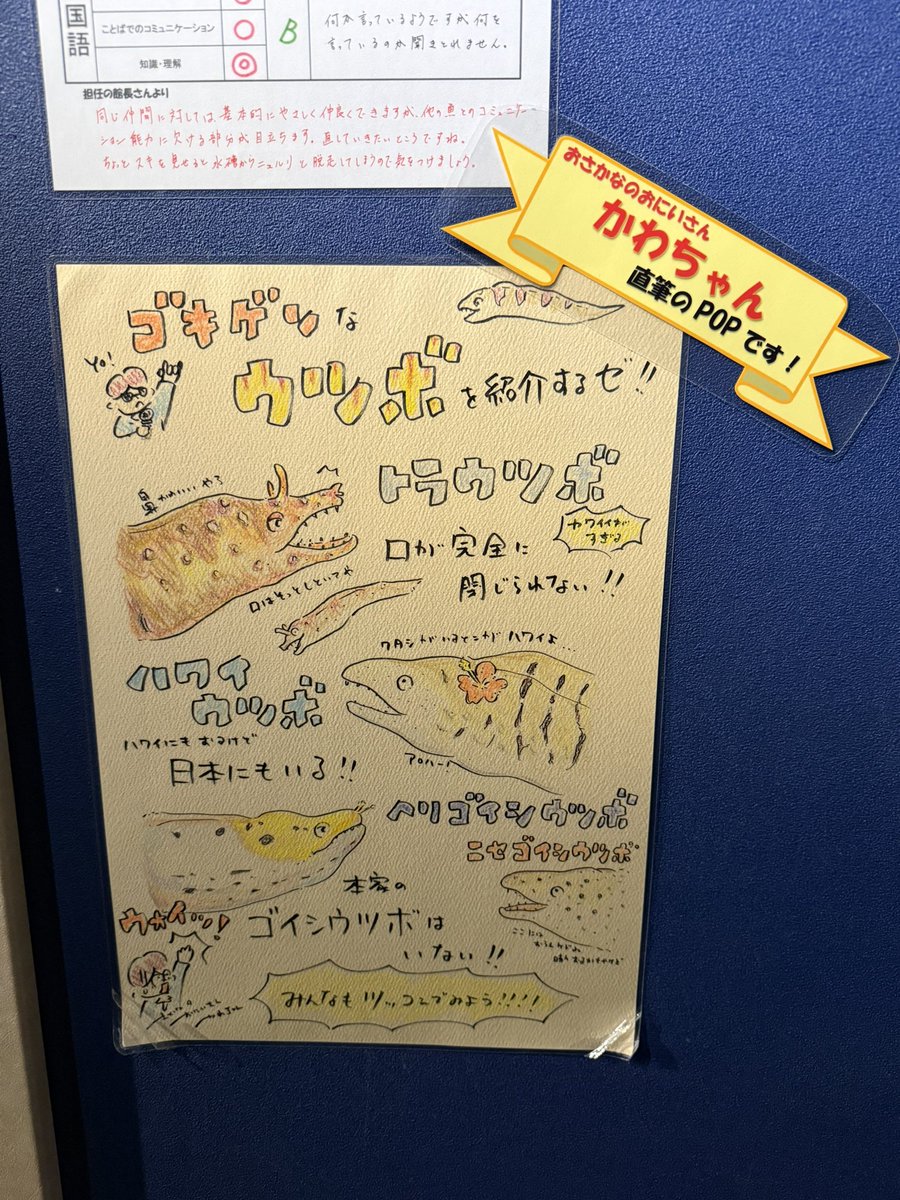 国語
ことばでのコミュニケーション
知識・理解
B
何か言っているようですが何を
言っているのか聞きとれません。
担任の館長さんより
同じ仲間に対しては基本的にやさしく仲良くできますが、他の魚とのコミュニケー
ション能力に欠ける部分が目立ちます。直していきたいところですね。
ちょっとスキを見せると水槽からニュルリと脱走してしまうので気をつけましょう。
おさかなのおにいさん
かわちゃん
直筆のPOPです!
ゴキゲンな
Yo!
ウツボを紹介するゼ!!
鼻かわいいやろ
トラウツボ
カワイイがすぎる
口が完全に
閉じられない!!
口はそっとしといてや
ワタシがいるとこがハワイよ…
ハワイ
ウツボ
ハワイにもおるけど
日本にもいる!!
アロハー!
ヘリゴイシウツボ
ニセゴイシウツボ
本家の
ゴイシウツボは
いない!!
ウォイッ!
ここには
みんなもツッコんでみよう!!!!